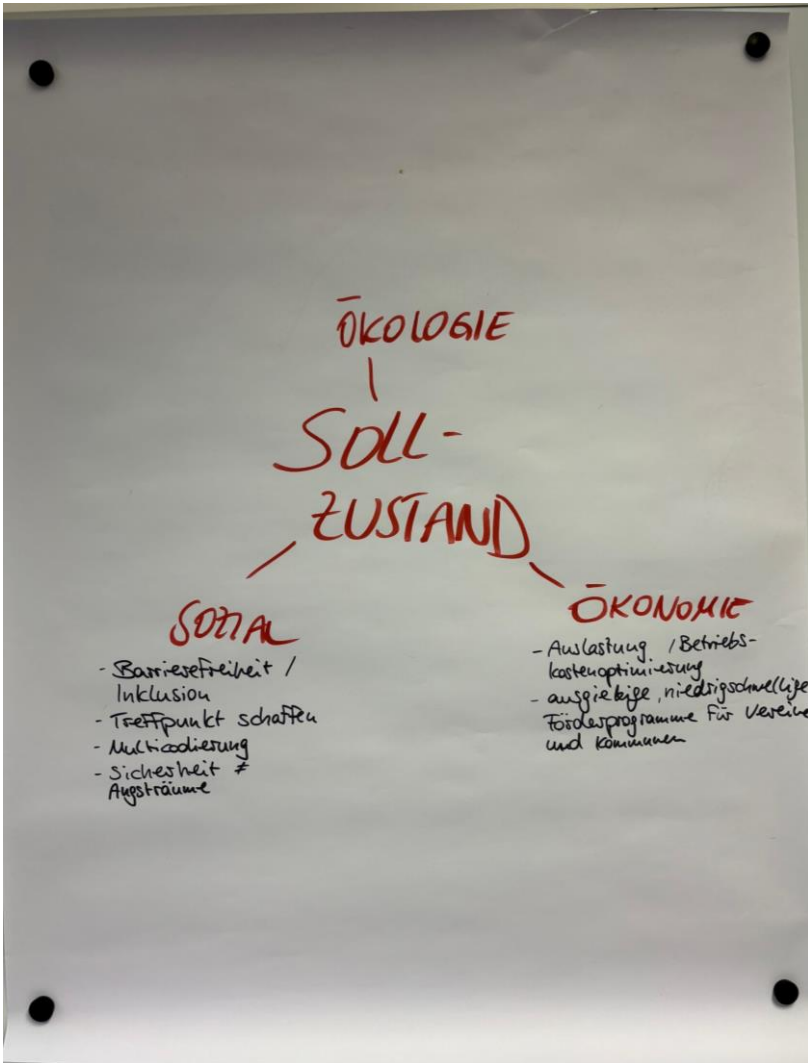 ÖKOLOGIE
SOLL-
ZUSTAND
SOZIAL
- Barrierefreiheit /
Inklusion
- Treffpunkt schaffen
- Multicodierung
- Sicherheit ≠
Angsträume
ÖKONOMIE
- Auslastung / Betriebs-
kostenoptimierung
- ausgiebige, niedrigschwellige
Förderprogramme für Vereine
und Kommunen